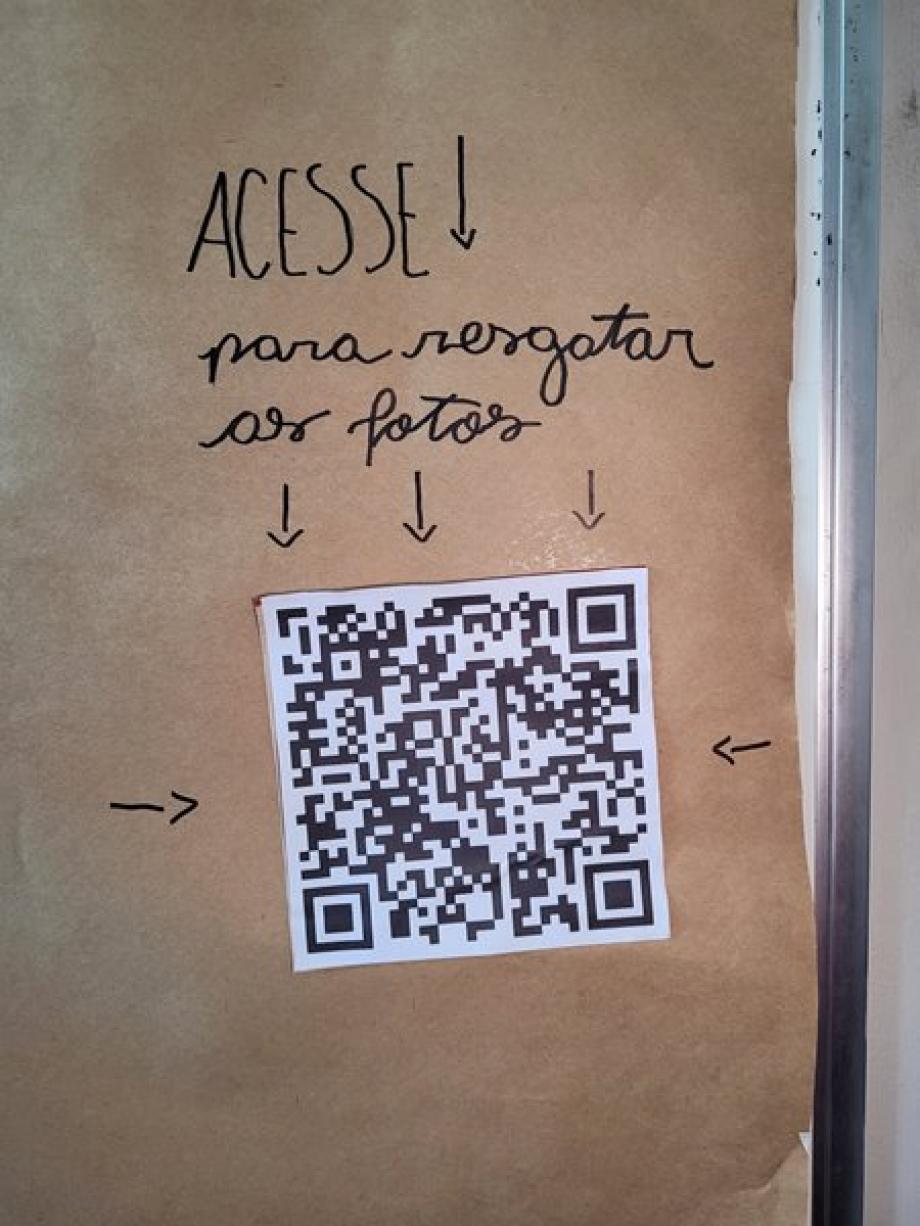 ACESSE
para resgatar
as fotos